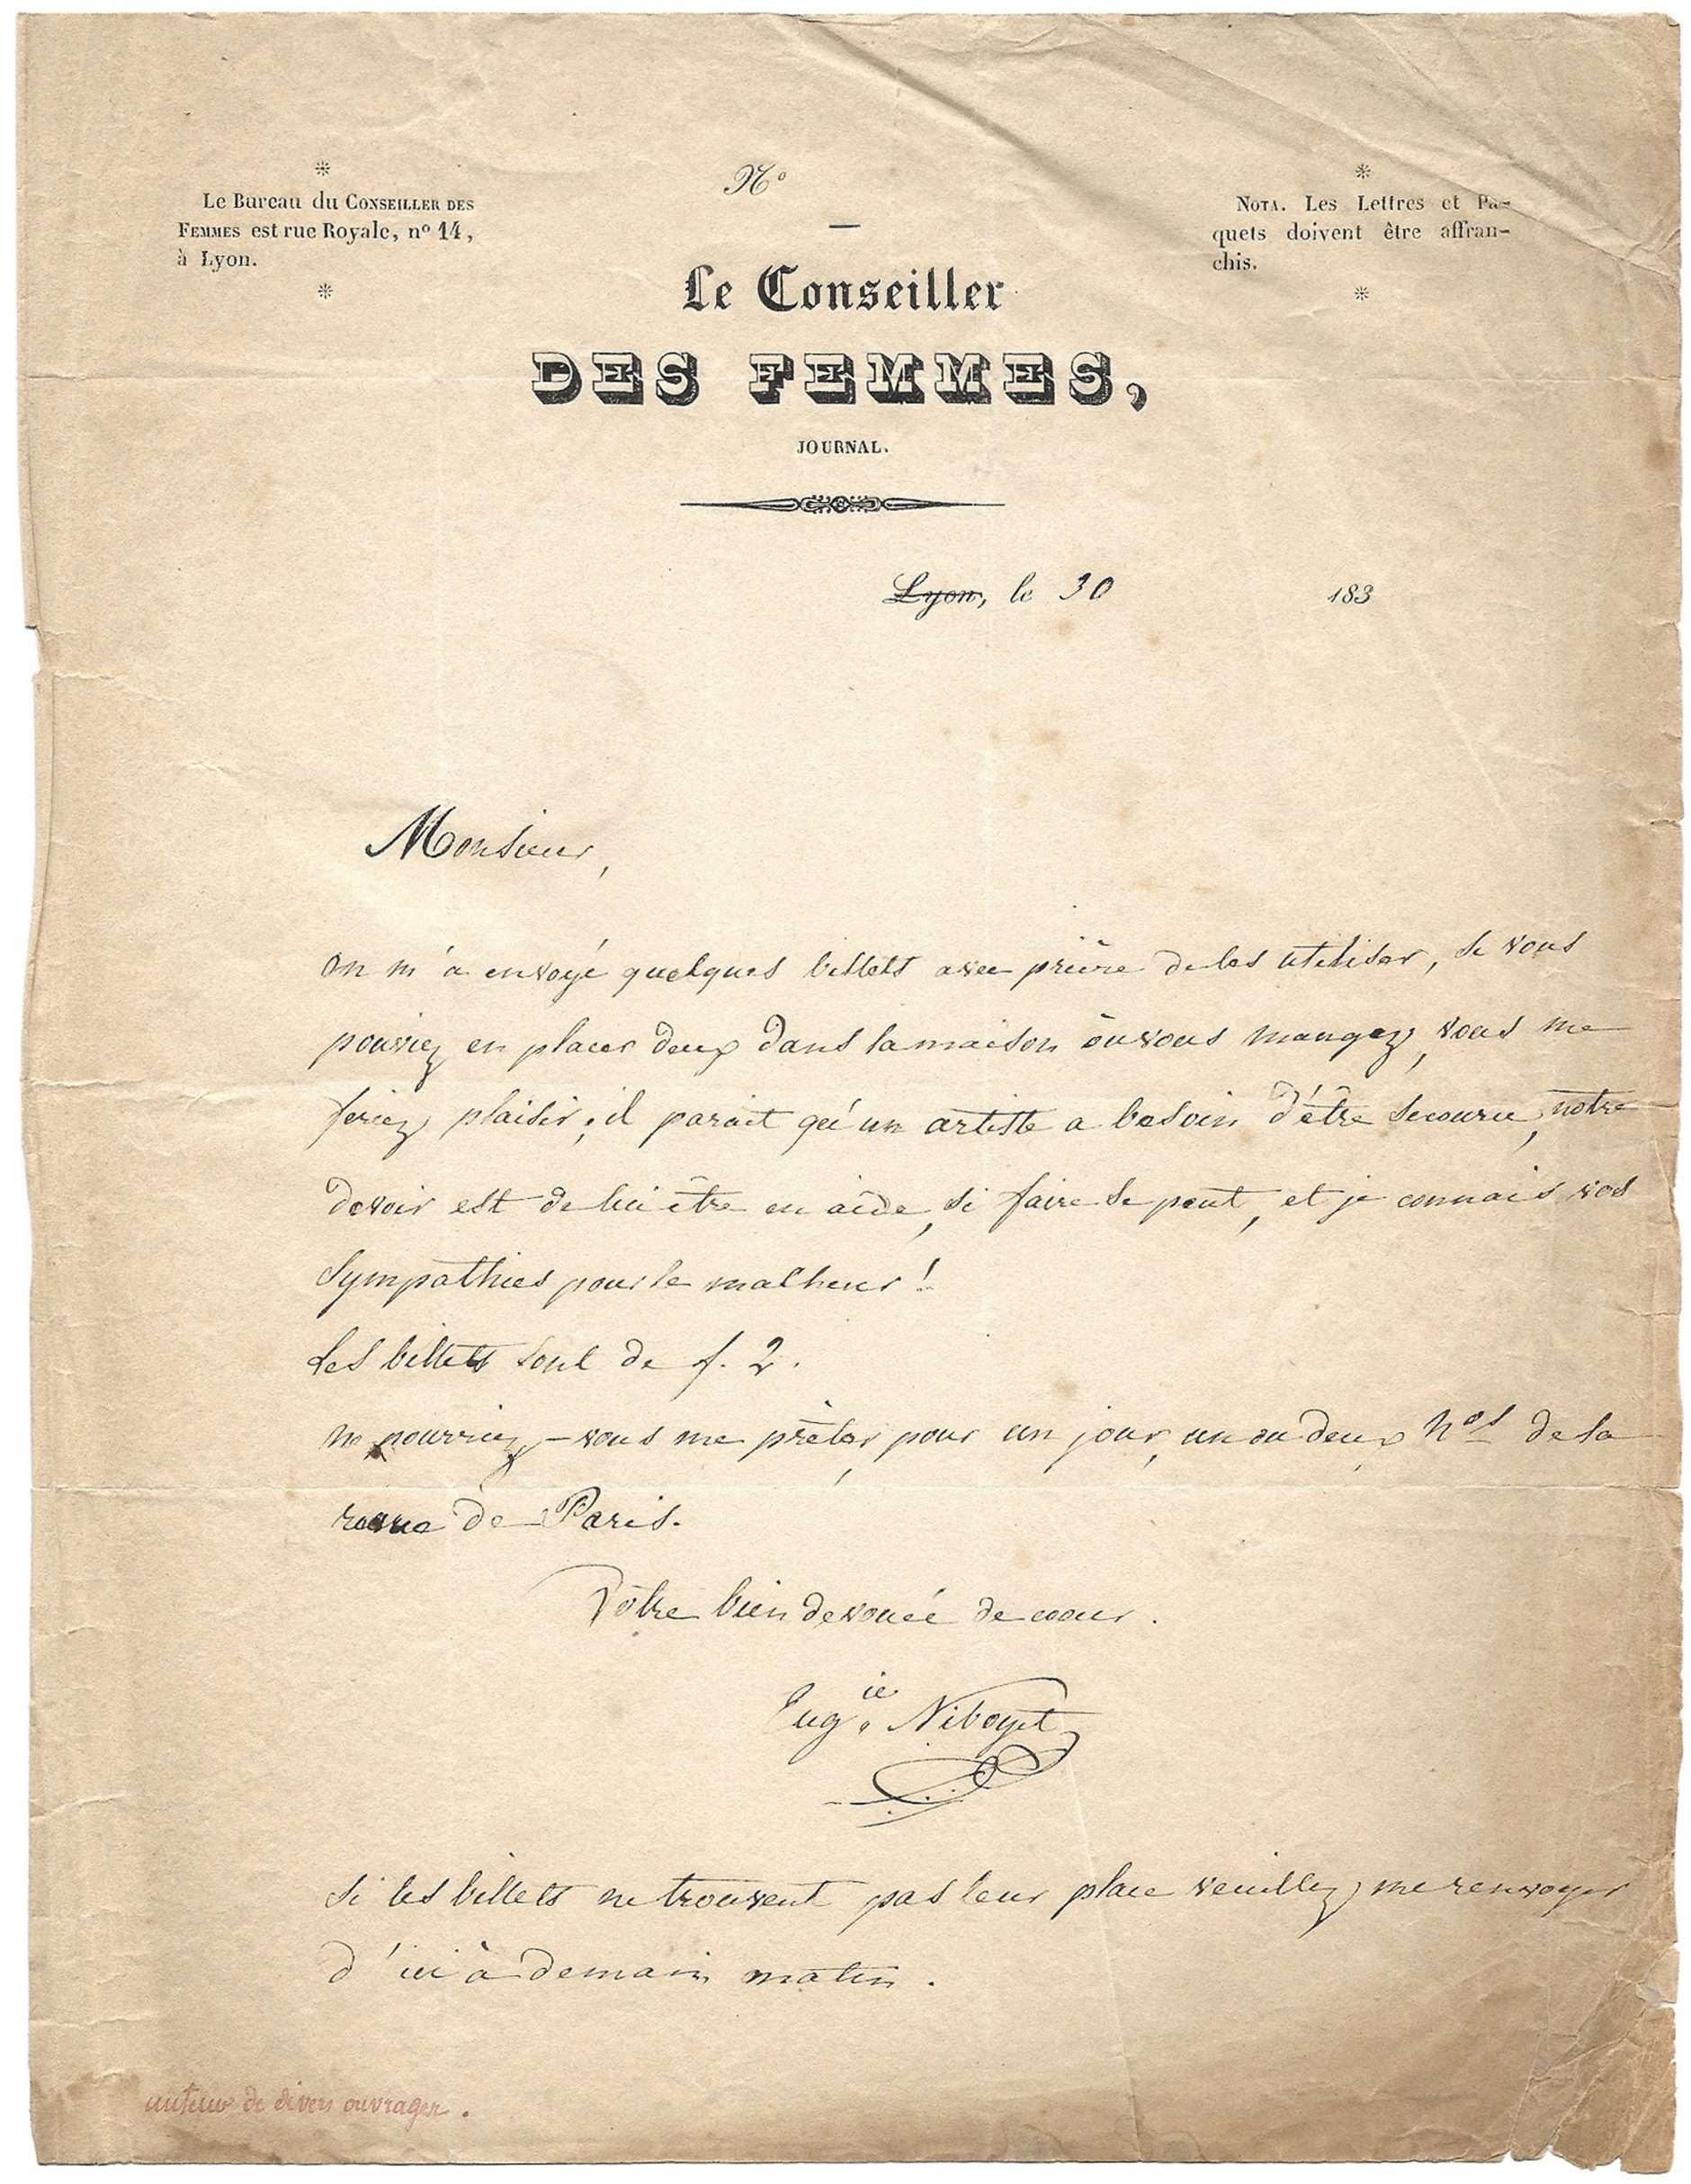 Le Bureau du CONSEILLER DES
FEMMES est rue Royale, nº 14,
à Lyon.
Nº
NOTA. Les Lettres et Pa-
quets doivent être affran-
chis.
Le Conseiller
DES FEMMES,
JOURNAL.
Lyon, le 30 183
Monsieur,
on m'a envoyé quelques billets avec prière de les utiliser, si vous
pouviez en placer deux dans la maison où vous mangez, vous me
feriez plaisir ; il parait qu'un artiste a besoin d'être secouru, notre
devoir est de lui être en aide, si faire se peut, et je connais vos
sympathies pour le malheur !
Les billets sont de f. 2.
ne pourriez-vous me prêter, pour un jour, un ou deux Nos de la
revue de Paris.
Vôtre bien devouée de coeur.
Eugie Niboyet
Si les billets ne trouvent pas leur place veuillez me renvoyer
d'ici à demain matin.
auteur de divers ouvrages.